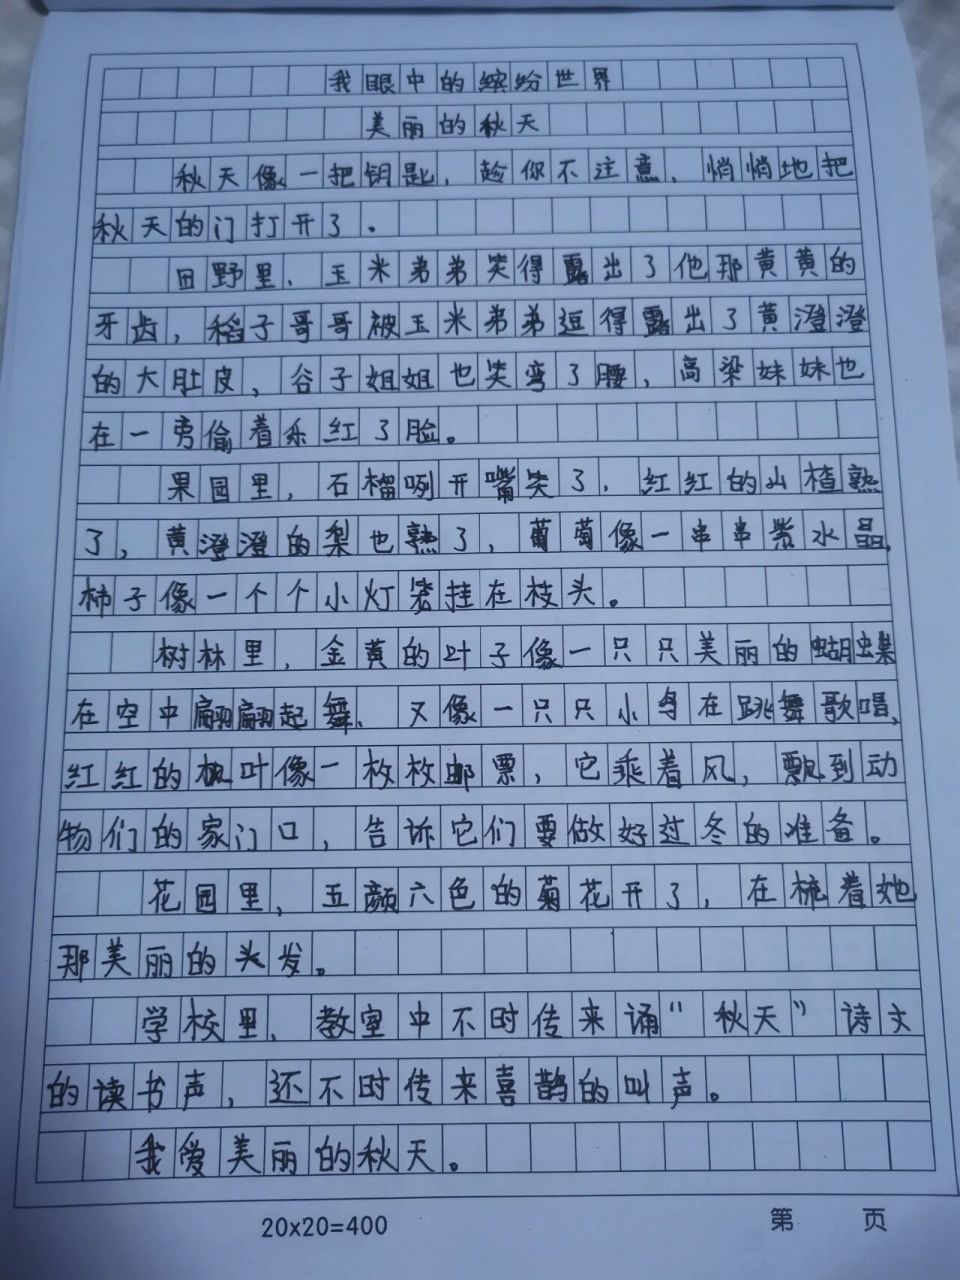 我眼中的缤纷世界
美丽的秋天
秋天像一把钥匙，趁你不注意，悄悄地把
秋天的门打开了。
田野里，玉米弟弟笑得露出了他那黄黄的
牙齿，稻子哥哥被玉米弟弟逗得露出了黄澄澄
的大肚皮，谷子姐姐也笑弯了腰，高粱妹妹也
在一旁偷着乐红了脸。
果园里，石榴咧开嘴笑了，红红的山楂熟
了，黄澄澄的梨也熟了，葡萄像一串串紫水晶，
柿子像一个个小灯笼挂在枝头。
树林里，金黄的叶子像一只只美丽的蝴蝶
在空中翩翩起舞、又像一只只小鸟在跳舞歌唱，
红红的枫叶像一枚枚邮票，它乘着风，飘到动
物们的家门口，告诉它们要做好过冬的准备。
花园里，五颜六色的菊花开了，在梳着她
那美丽的头发。
学校里，教室中不时传来诵“秋天”诗文
的读书声，还不时传来喜鹊的叫声。
我爱美丽的秋天。
20x20=400
第 页